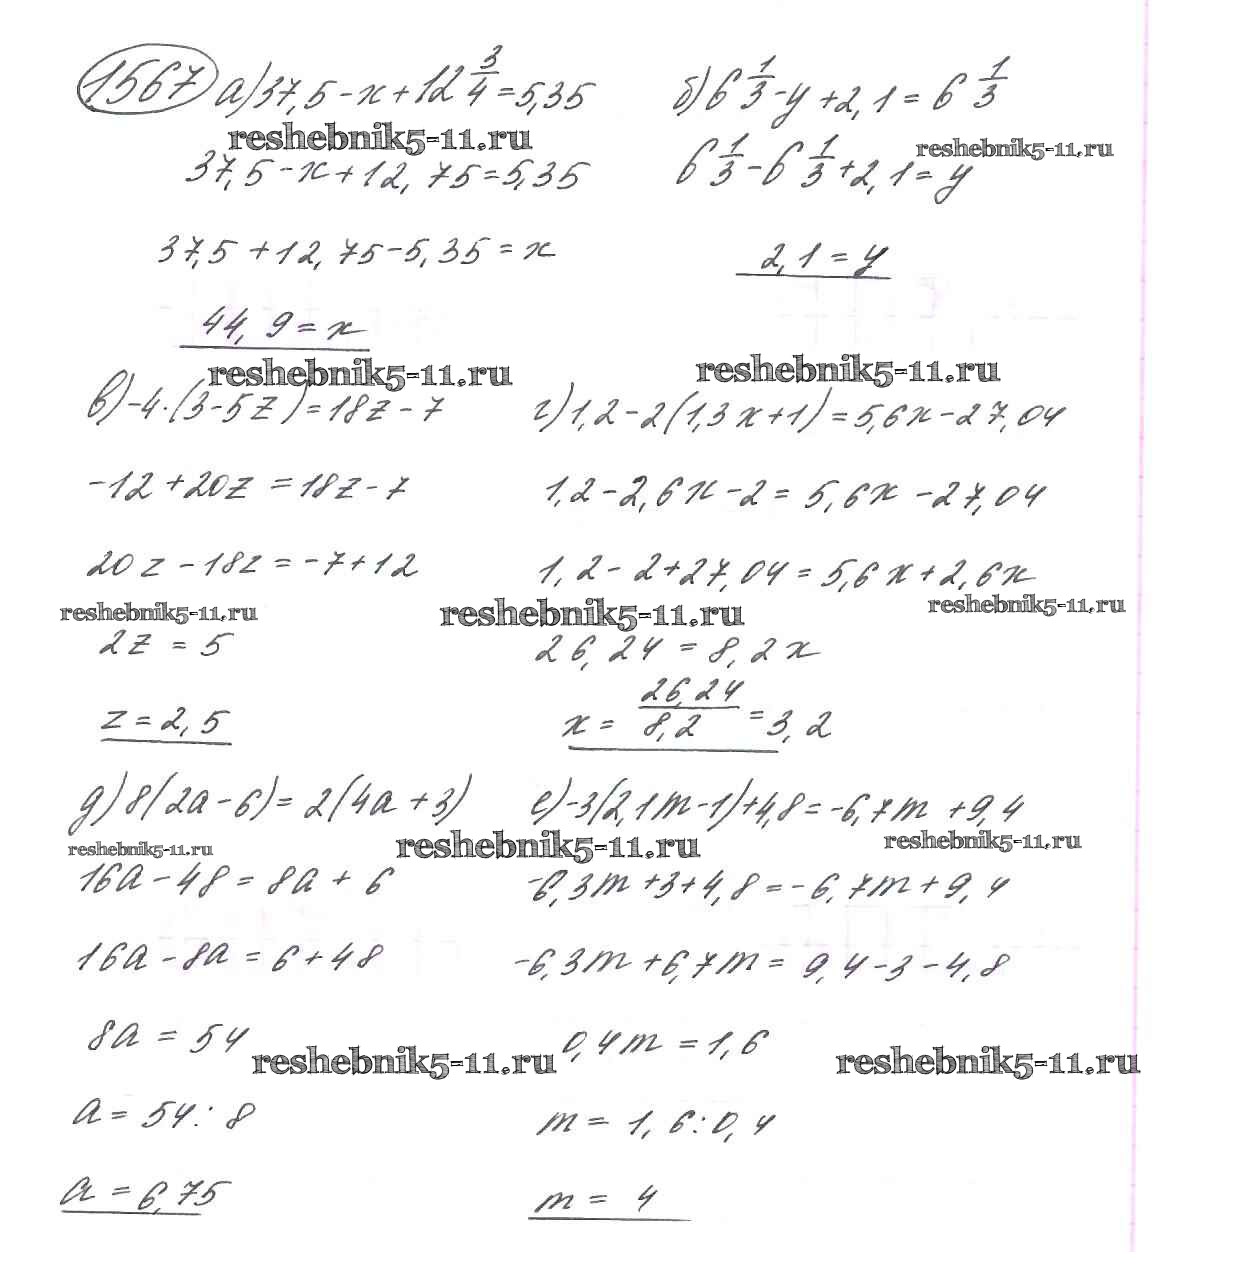 1567 а) 37,5 - x + 12 3/4 = 5,35
б) 6 1/3 - y + 2,1 = 6 1/3
reshebnik5-11.ru
reshebnik5-11.ru
37,5 - x + 12,75 = 5,35
6 1/3 - 6 1/3 + 2,1 = y
37,5 + 12,75 - 5,35 = x
2,1 = y
44,9 = x
reshebnik5-11.ru
reshebnik5-11.ru
в) -4·(3-5z) = 18z - 7
г) 1,2 - 2(1,3x+1) = 5,6x - 27,04
-12 + 20z = 18z - 7
1,2 - 2,6x - 2 = 5,6x - 27,04
20z - 18z = -7 + 12
1,2 - 2 + 27,04 = 5,6x + 2,6x
reshebnik5-11.ru
reshebnik5-11.ru
reshebnik5-11.ru
2z = 5
26,24 = 8,2x
z = 2,5
x = 26,24/8,2 = 3,2
д) 8(2a-6) = 2(4a+3)
е) -3(2,1m-1)+4,8 = -6,7m + 9,4
reshebnik5-11.ru
reshebnik5-11.ru
reshebnik5-11.ru
16a - 48 = 8a + 6
-6,3m + 3 + 4,8 = -6,7m + 9,4
16a - 8a = 6 + 48
-6,3m + 6,7m = 9,4 - 3 - 4,8
8a = 54
0,4m = 1,6
reshebnik5-11.ru
reshebnik5-11.ru
a = 54 : 8
m = 1,6 : 0,4
a = 6,75
m = 4